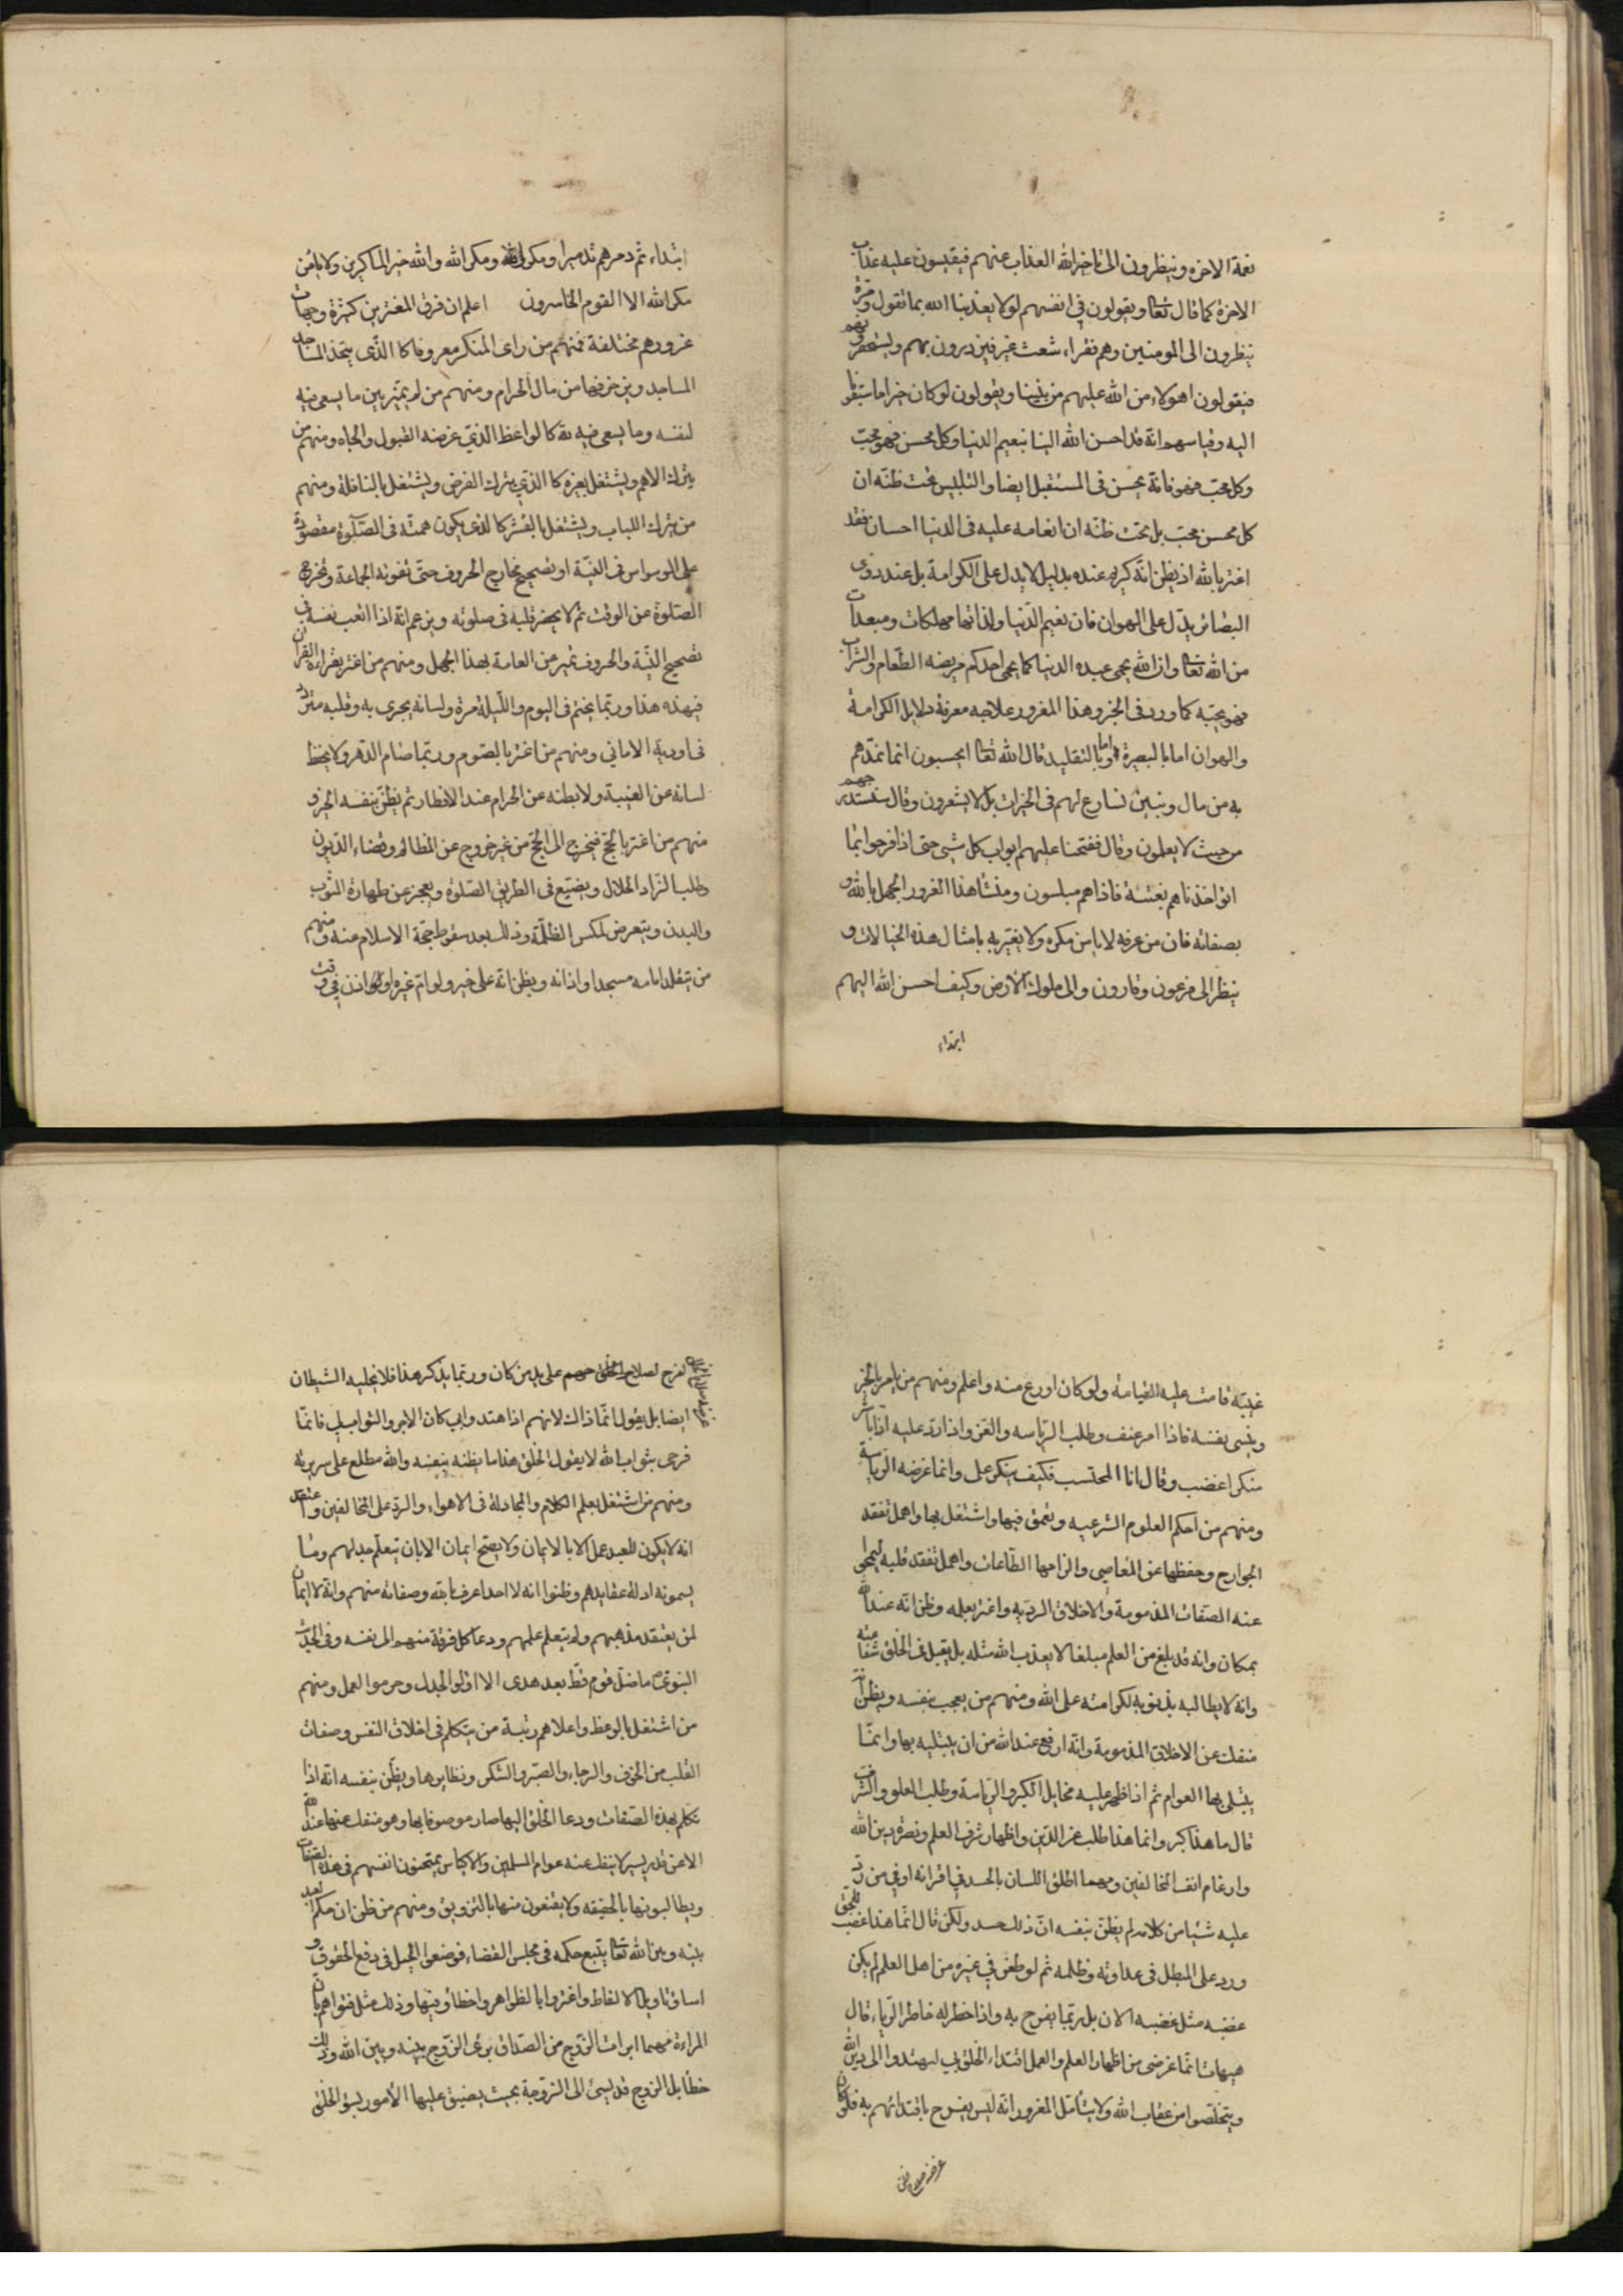 نعمة الاخرة وينظرون الى تاخير الله العذاب عنهم فيقيسون عليه عذاب
الاخرة كما قال تعا ويقولون في انفسهم لولا يعذبنا الله بما نقول ومرة
ينظرون الى المومنين وهم فقراء شعث غبر فيزدرون بهم ويستحقرونهم
فيقولون اهولاء من الله عليهم من بيننا ويقولون لو كان خيرا ما سبقونا
اليه وقياسهم انه قد احسن الله الينا بنعيم الدنيا وكل محسن فهو محب
وكل محب فهو فانه يحسن في المستقبل ايضا والتلبيس تحت ظنه ان
كل محسن محب بل تحت ظنه ان انعامه عليه في الدنيا احسان فقد
اغتر بالله اذ يظن انه كريم عنده بدليل لا يدل على الكرامة بل عند ذوى
البصائر يدل على الهوان فان نعيم الدنيا ولذاتها مهلكات ومبعدات
من الله تعا وان الله يحمى عبده الدنيا كما يحمى احدكم مريضه الطعام والشراب
فهو يحبه كما ورد في الخبر وهذا المغرور علاجه معرفة دلايل الكرامة
والهوان اما بالبصيرة واما بالتقليد قال الله تعا ايحسبون انما نمدهم
به من مال وبنين نسارع لهم في الخيرات بل لا يشعرون وقال سنستدرجهم
من حيث لا يعلمون وقال ففتحنا عليهم ابواب كل شئ حتى اذا فرحوا بما
اتوا اخذناهم بغتة فاذا هم مبلسون ومنشا هذا الغرور الجهل بالله و
بصفاته فان من عرفه لا يامن مكره ولا يغتر به بامثال هذه الخيالات و
ينظر الى فرعون وقارون والى ملوك الارض وكيف احسن الله اليهم
ابتداء
ابتداء ثم دمرهم تدميرا ومكروا ومكر الله والله خير الماكرين ولا يامن
مكر الله الا القوم الخاسرون اعلم ان فرق المغترين كثيرة وجهات
غرورهم مختلفة فمنهم من راى المنكر معروفا كالذى يتخذ المساجد
المساجد ويزخرفها من مال الحرام ومنهم من لم يميز بين ما يسعى فيه
لنفسه وما يسعى فيه لله كالواعظ الذي غرضه القبول والجاه ومنهم من
يترك الاهم ويشتغل بغيره كالذي يترك الفرض ويشتغل بالنافلة ومنهم
من يترك اللباب ويشتغل بالقشر كالذى يكون همته في الصلوة مقصورة
على الوسواس في النية او تصحيح مخارج الحروف حتى تفوته الجماعة وتخرج
الصلوة عن الوقت ثم لا يحضر قلبه في صلوته ويزعم انه اذا اتعب نفسه في
تصحيح النية والحروف تميز من العامة بهذا الجهل ومنهم من اغتر بقراءة القران
فيهذه هذا وربما يختم في اليوم والليلة مرة ولسانه يجرى به وقلبه متردد
في اودية الاماني ومنهم من اغتر بالصوم وربما صام الدهر ولا يحفظ
لسانه عن الغيبة ولا بطنه عن الحرام عند الافطار ثم يظن بنفسه الخير و
منهم من اغتر بالحج فيخرج الى الحج من غير خروج عن المظالم وقضاء الديون
وطلب الزاد الحلال ويضيع في الطريق الصلوة ويعجز عن طهارة الثوب
والبدن ويتعرض لمكس الظلمة وذلك بعد سقوط حجة الاسلام عنه ومنهم
من تقلد امامه مسجد او اذانه ويظن انه على خير ولو ام غيره او اذن في وقت
غيبته قامت عليه القيامة ولو كان اورع منه واعلم ومنهم من يامر بالخير
وينسى نفسه فاذا امر عنف وطلب الرياسه والعز واذا رد عليه اذا باشر
منكرا غضب وقال انا المحتسب فكيف ينكر على وانما غرضه الرياسة
ومنهم من احكم العلوم الشرعيه وتعمق فيها واشتغل بها واهمل تفقد
الجوارح وحفظها عن المعاصى والزامها الطاعات واهمل تفقد قلبه ليمحى
عنه الصفات المذمومة والاخلاق الرديه واغتر بعلمه وظن انه عند الله
بمكان وانه قد بلغ من العلم مبلغا لا يعذب الله مثله بل يقبل في الخلق شفاعته
وانه لا يطالبه بذنوبه لكرامته على الله ومنهم من يعجب بنفسه ويظن انه
منفك عن الاخلاق المذمومة وانه ارفع عند الله من ان يبتليه بها وانما
يبتلى بها العوام ثم اذا ظهر عليه مخايل الكبر والرياسة وطلب العلو والشرف
قال ما هذا كبر وانما هذا طلب عز الدين واظهار شرف العلم ونصرة دين الله
وارغام انف المخالفين ومهما اطلق اللسان بالحسد في اقرانه او في من رد
عليه شيئا من كلامه لم يظن بنفسه ان ذلك حسد ولكن قال انما هذا غضب للحق
ورد على المبطل في عداوته وظلمه ثم لو طعن في غيره من اهل العلم لم يكن
غضبه مثل غضبه الان بل ربما يفرح به واذا خطر له خاطر الرياء قال
هيهات انما غرضى من اظهار العلم والعمل اقتداء الخلق بي ليهتدوا الى دين الله
ويتخلصوا من عقاب الله ولا يتامل المغرور انه ليس يفرح باقتدائهم به فلو كان
غرضه صلاح الخلق
لفرح لصلاح الخلق على يد من كان وربما يذكر هذا فلا يخليه الشيطان
ايضا بل يقول انما ذاك لانهم اذا اهتدوا بي كان الاجر والثواب لي فانما
فرحى بثواب الله لا بقول الخلق هذا ما يظنه بنفسه والله مطلع على سريرته
ومنهم من اشتغل بعلم الكلام والمجادلة في الاهواء والرد على المخالفين واعتقد
انه لا يكون للعبد عمل الا بالايمان ولا يصح ايمان الا بان يتعلم جدلهم وما
يسمونه ادلة عقايدهم وظنوا انه لا احد اعرف بالله وصفاته منهم وانه لا ايمان
لمن يعتقد مذهبهم ولم يتعلم علمهم ودعا كل فرقة منهم الى نفسه وفي الحديث
النبوى ما ضل قوم قط بعد هدى الا اوتوا الجدل وحرموا العمل ومنهم
من اشتغل بالوعظ واعلاهم رتبة من يتكلم في اخلاق النفس وصفات
القلب من الخوف والرجاء والصبر والشكر ونظايرها ويظن بنفسه انه اذا
تكلم بهذه الصفات ودعا الخلق اليها صار موصوفا بها وهو منفك عنها عند الله
الا عن قدر يسير لا ينفك عنه عوام المسلمين والاكياس يمتحنون انفسهم في هذه الصفات
ويطالبونها بالحقيقه ولا يقنعون منها بالتزويق ومنهم من ظن ان حكم العبد
بينه وبين الله تعا يتبع حكمه في مجلس القضاء فوضعوا الحيل في دفع الحقوق و
اساؤا تاويل الالفاظ واغتروا بالظواهر واخطاؤا فيها وذلك مثل فتواهم بان
المراءة مهما ابرات الزوج من الصداق برئ الزوج بينه وبين الله وذلك
خطأ بل الزوج قد يسئ الى الزوجة بحيث يضيق عليها الامور بسوء الخلق